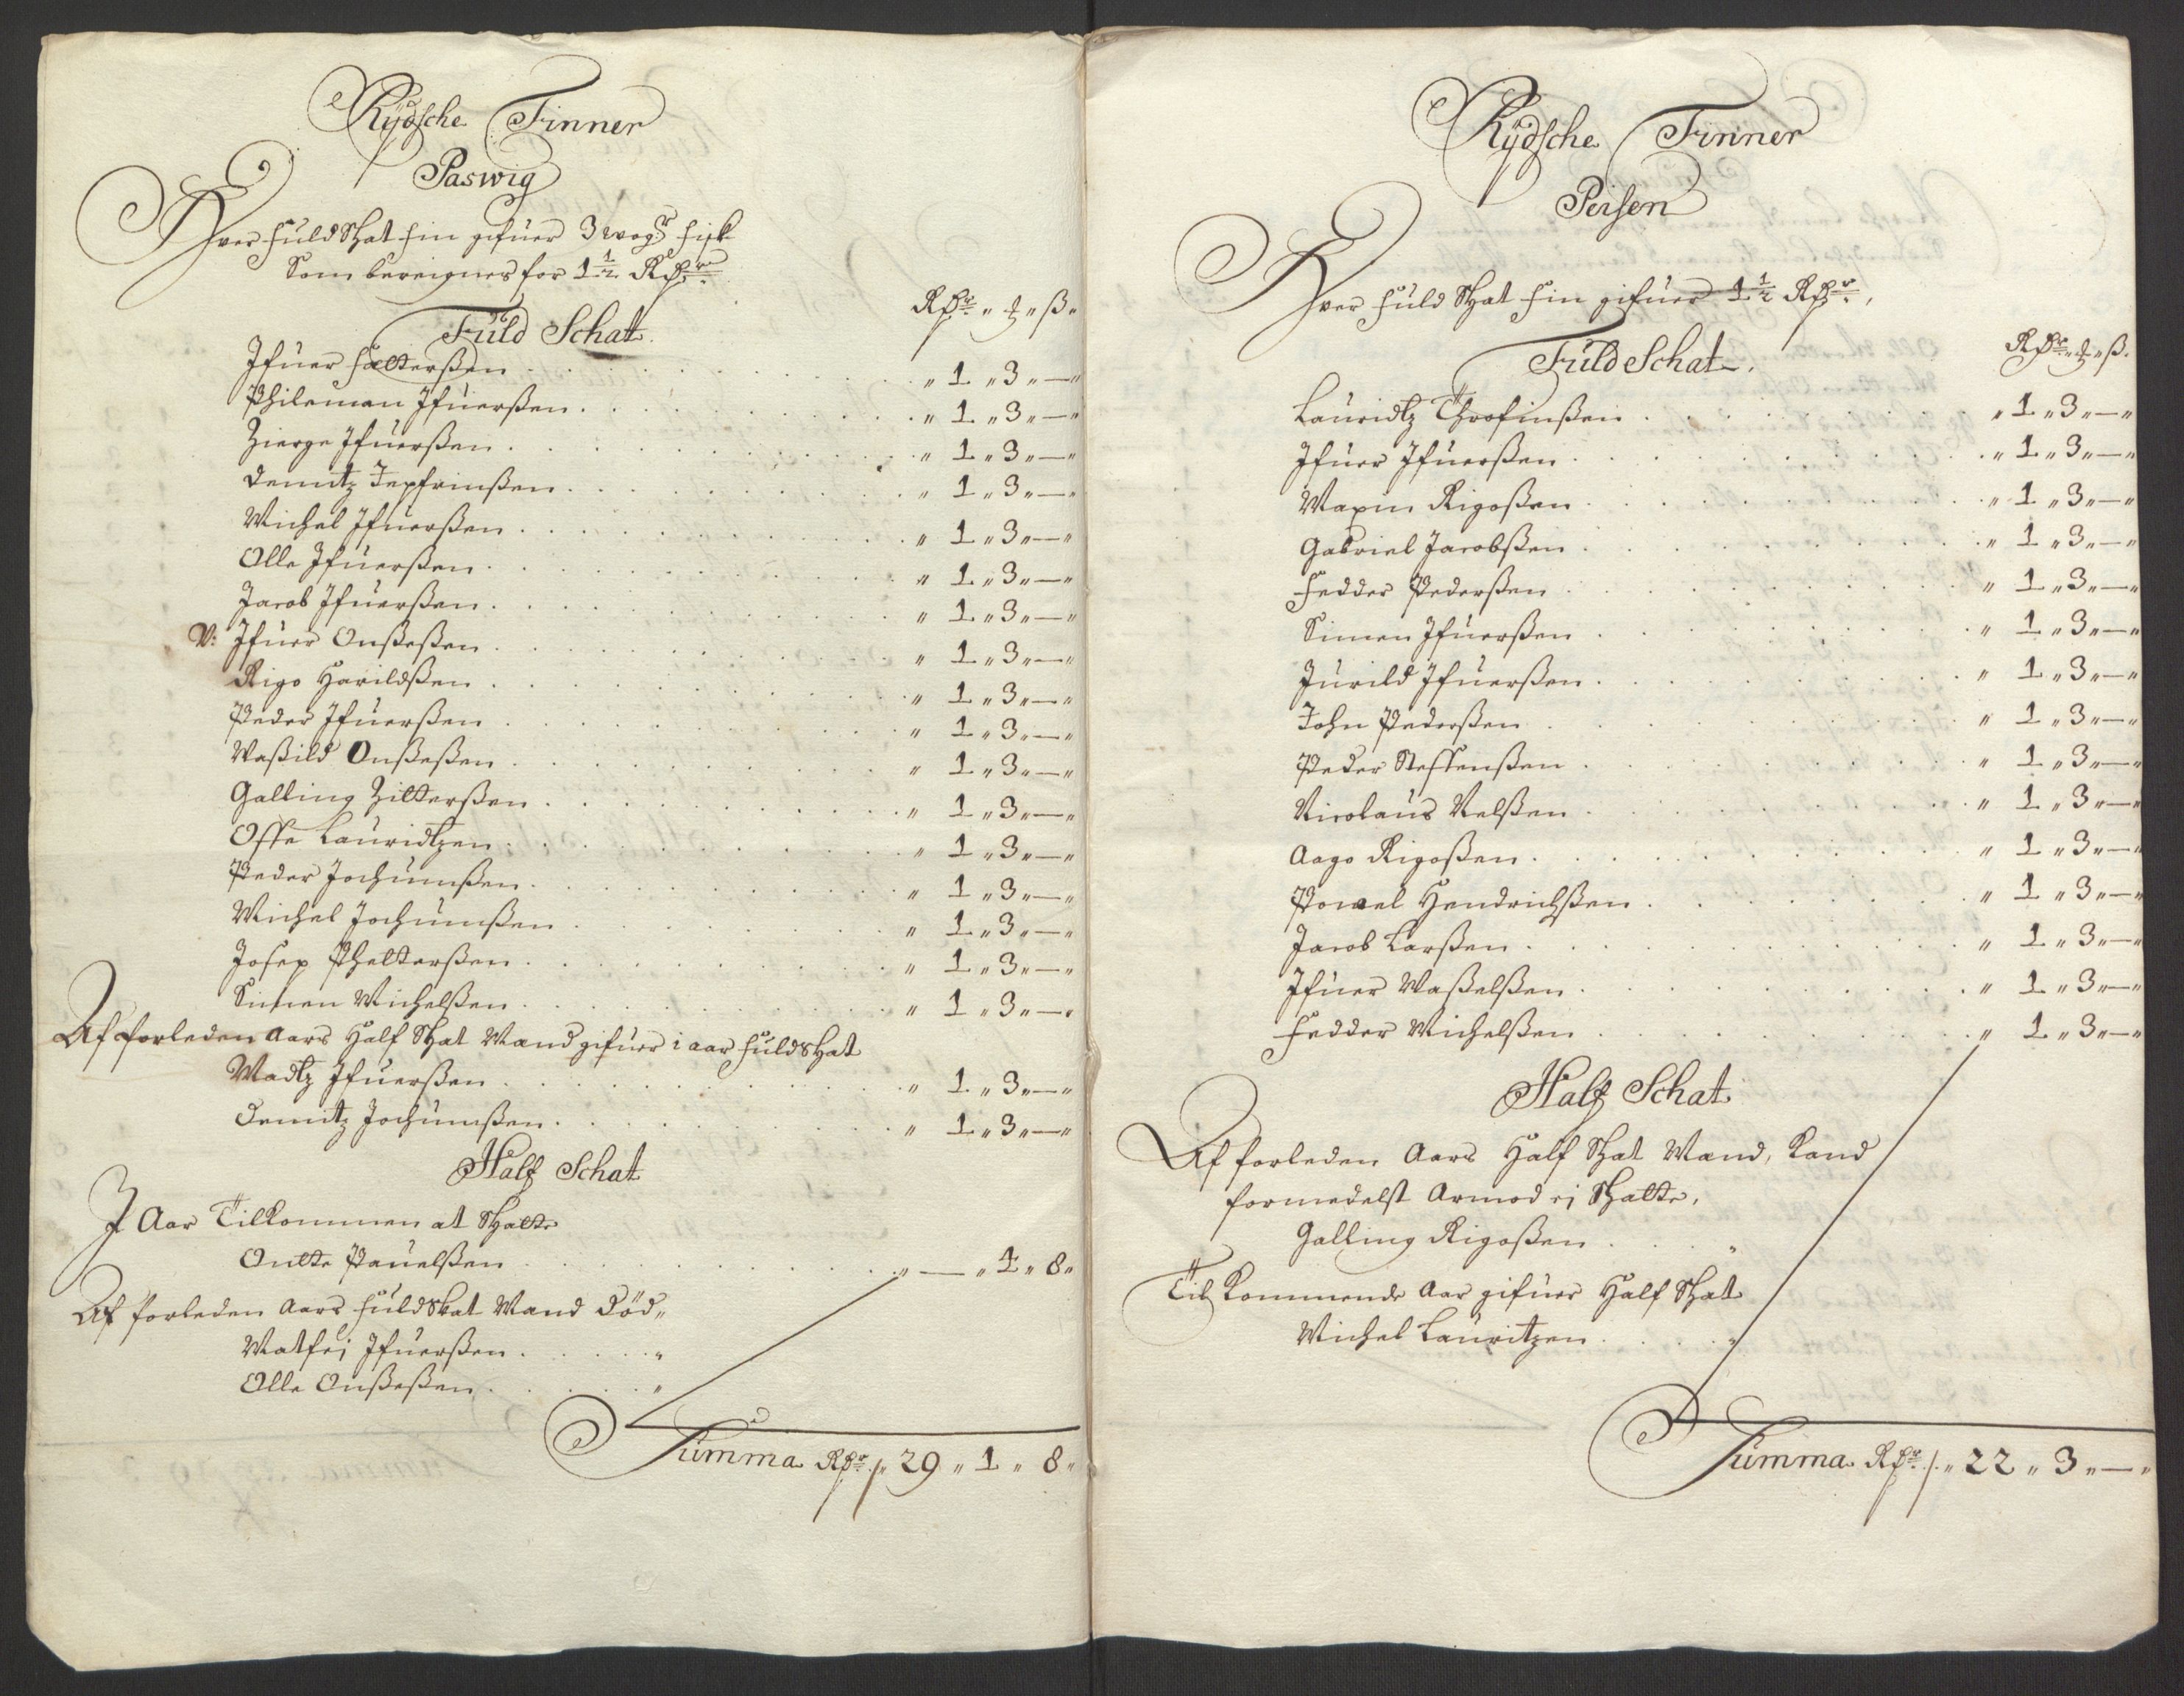 Rÿdsche Finner
Paswig
Hver fuld Skat fin gifuer 3 wogr fisk
Som bereignes for 1½ Rdr
Rdr " ₰ " ß "
Fuld Schat
Ifuer Hetterßen " 1 " 3 " — "
Philemon Ifuerßen " 1 " 3 " — "
Zierge Ifuerßen " 1 " 3 " — "
Demitz Jepfrinßen " 1 " 3 " — "
Michel Ifuerßen " 1 " 3 " — "
Olle Ifuerßen " 1 " 3 " — "
Jacob Ifuerßen " 1 " 3 " — "
N: Ifuer Onßeßen " 1 " 3 " — "
Rigo Harildßen " 1 " 3 " — "
Peder Ifuerßen " 1 " 3 " — "
Waßild Onßeßen " 1 " 3 " — "
Galling Zilterßen " 1 " 3 " — "
Offe Lauridtzen " 1 " 3 " — "
Peder Jochumßen " 1 " 3 " — "
Michel Jochumßen " 1 " 3 " — "
Josep Phelterßen " 1 " 3 " — "
Simen Michelßen " 1 " 3 " — "
Af forleden Aars Half Skat Mand gifuer i aar fuld skat
Madtz Ifuerßen " 1 " 3 " — "
Demitz Jochumßen " 1 " 3 " — "
Half Schat
I Aar Tilkommen at Skatte
Ontte Pauelßen " — " 1 " 8 "
Af forleden Aars fuld Skat Mand Död "
Matfej Ifuerßen "
Olle Onßeßen "
Summa Rdr /. 29 " 1 " 8 "
Rÿdsche Finner
Peisen
Hver fuld Skat fin gifuer 1½ Rdr,
Rdr " ₰ " ß.
Fuld Schat
Lauridtz Throfinßen " 1 " 3 " — "
Ifuer Ifuerßen " 1 " 3 " — "
Maxim Rigoßen " 1 " 3 " — "
Gabriel Jacobßen " 1 " 3 " — "
Fedder Pederßen " 1 " 3 " — "
Simen Ifuerßen " 1 " 3 " — "
Jurild Ifuerßen " 1 " 3 " — "
John Pederßen " 1 " 3 " — "
Peder Steffenßen " 1 " 3 " — "
Nicolaus Nelßen " 1 " 3 " — "
Aago Rigoßen " 1 " 3 " — "
Powel Hendrichßen " 1 " 3 " — "
Jacob Larßen " 1 " 3 " — "
Ifuer Waßelßen " 1 " 3 " — "
Fedder Michelßen " 1 " 3 " — "
Half Schat
Af forleden Aars Half Skat Mand, Kand
formedelst Armod ej Skatte,
Galling Rigoßen "
Til Kommende Aar gifuer Half Skat
Michel Lauritzen "
Summa Rdr /. " 22 " 3 " — "